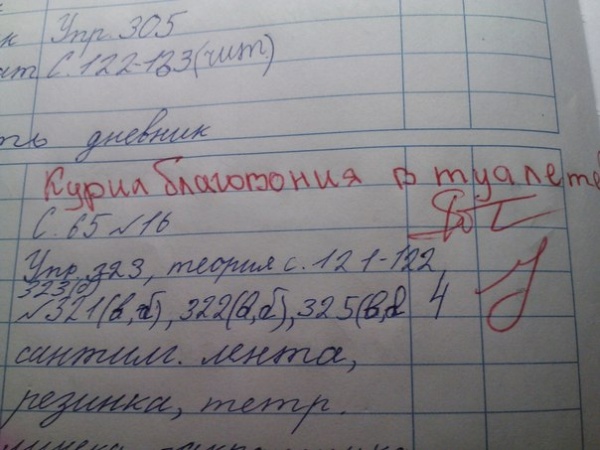 Упр. 305
С. 122-123 (чит)
дневник
Курил благовония в туалете
С. 65 №16
Упр. 323, теория с. 121-122,
323(б)
№321(в,б), 322(а,б), 325(в,а 4
сантим. лента,
резинка, тетр.